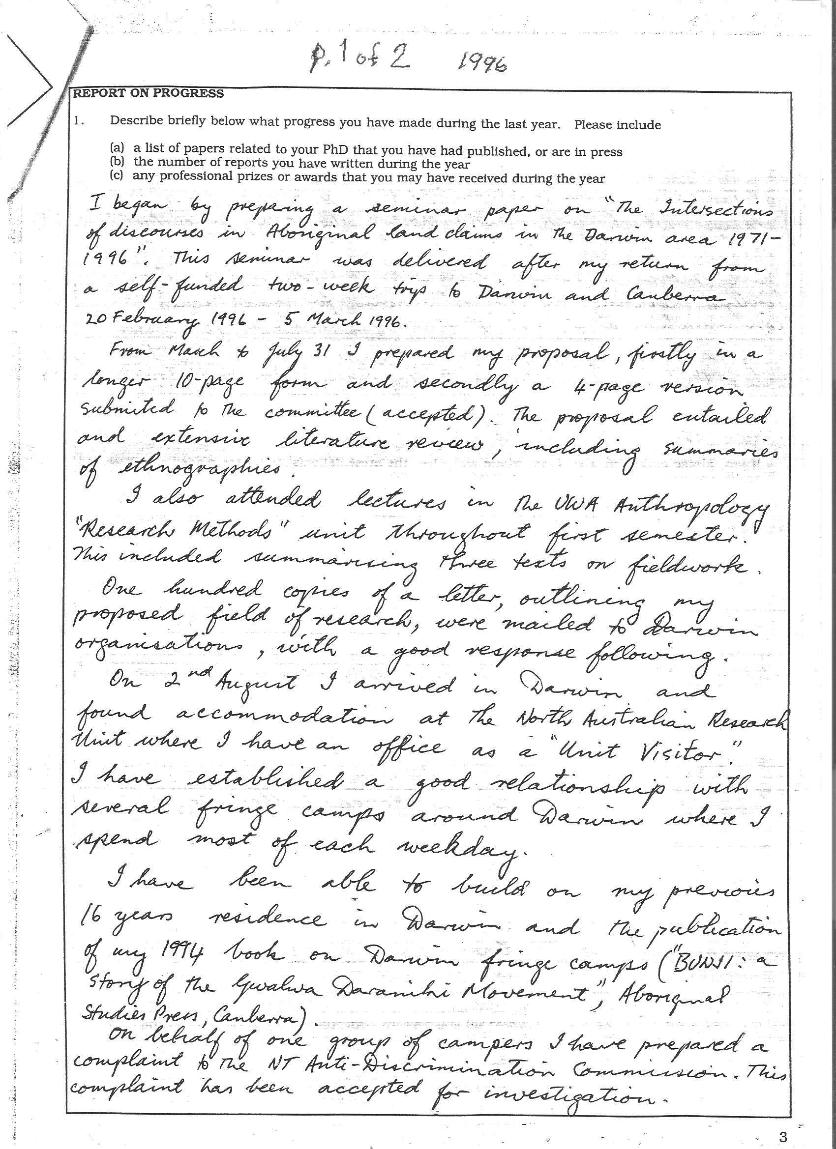 p. 1 of 2 1996
REPORT ON PROGRESS
1. Describe briefly below what progress you have made during the last year. Please include
(a) a list of papers related to your PhD that you have had published, or are in press
(b) the number of reports you have written during the year
(c) any professional prizes or awards that you may have received during the year
I began by preparing a seminar paper on "The Intersections
of discourses in Aboriginal land claims in the Darwin area 1971-
1996". This seminar was delivered after my return from
a self-funded two-week trip to Darwin and Canberra
20 February 1996 - 5 March 1996.
From March to July 31 I prepared my proposal, firstly in a
longer 10-page form and secondly a 4-page version
submitted to the committee (accepted). The proposal entailed
and extensive literature review, including summaries
of ethnographies.
I also attended lectures in the UWA Anthropology
"Research Methods" unit throughout first semester.
This included summarising three texts on fieldwork.
One hundred copies of a letter, outlining my
proposed field of research, were mailed to Darwin
organisations, with a good response following.
On 2nd August I arrived in Darwin and
found accommodation at the North Australian Research
Unit where I have an office as a "Unit Visitor".
I have established a good relationship with
several fringe camps around Darwin where I
spend most of each weekday.
I have been able to build on my previous
16 years residence in Darwin and the publication
of my 1994 book on Darwin fringe camps ("BUNJI: a
Story of the Gwalwa Daraniki Movement", Aboriginal
Studies Press, Canberra).
On behalf of one group of campers I have prepared a
complaint to the NT Anti-Discrimination Commission. This
complaint has been accepted for investigation.
3